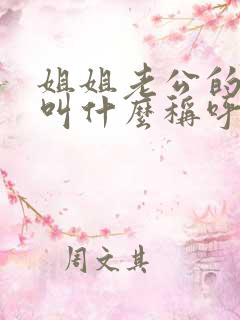 姐姐老公的
叫什麼稱呼
周文其